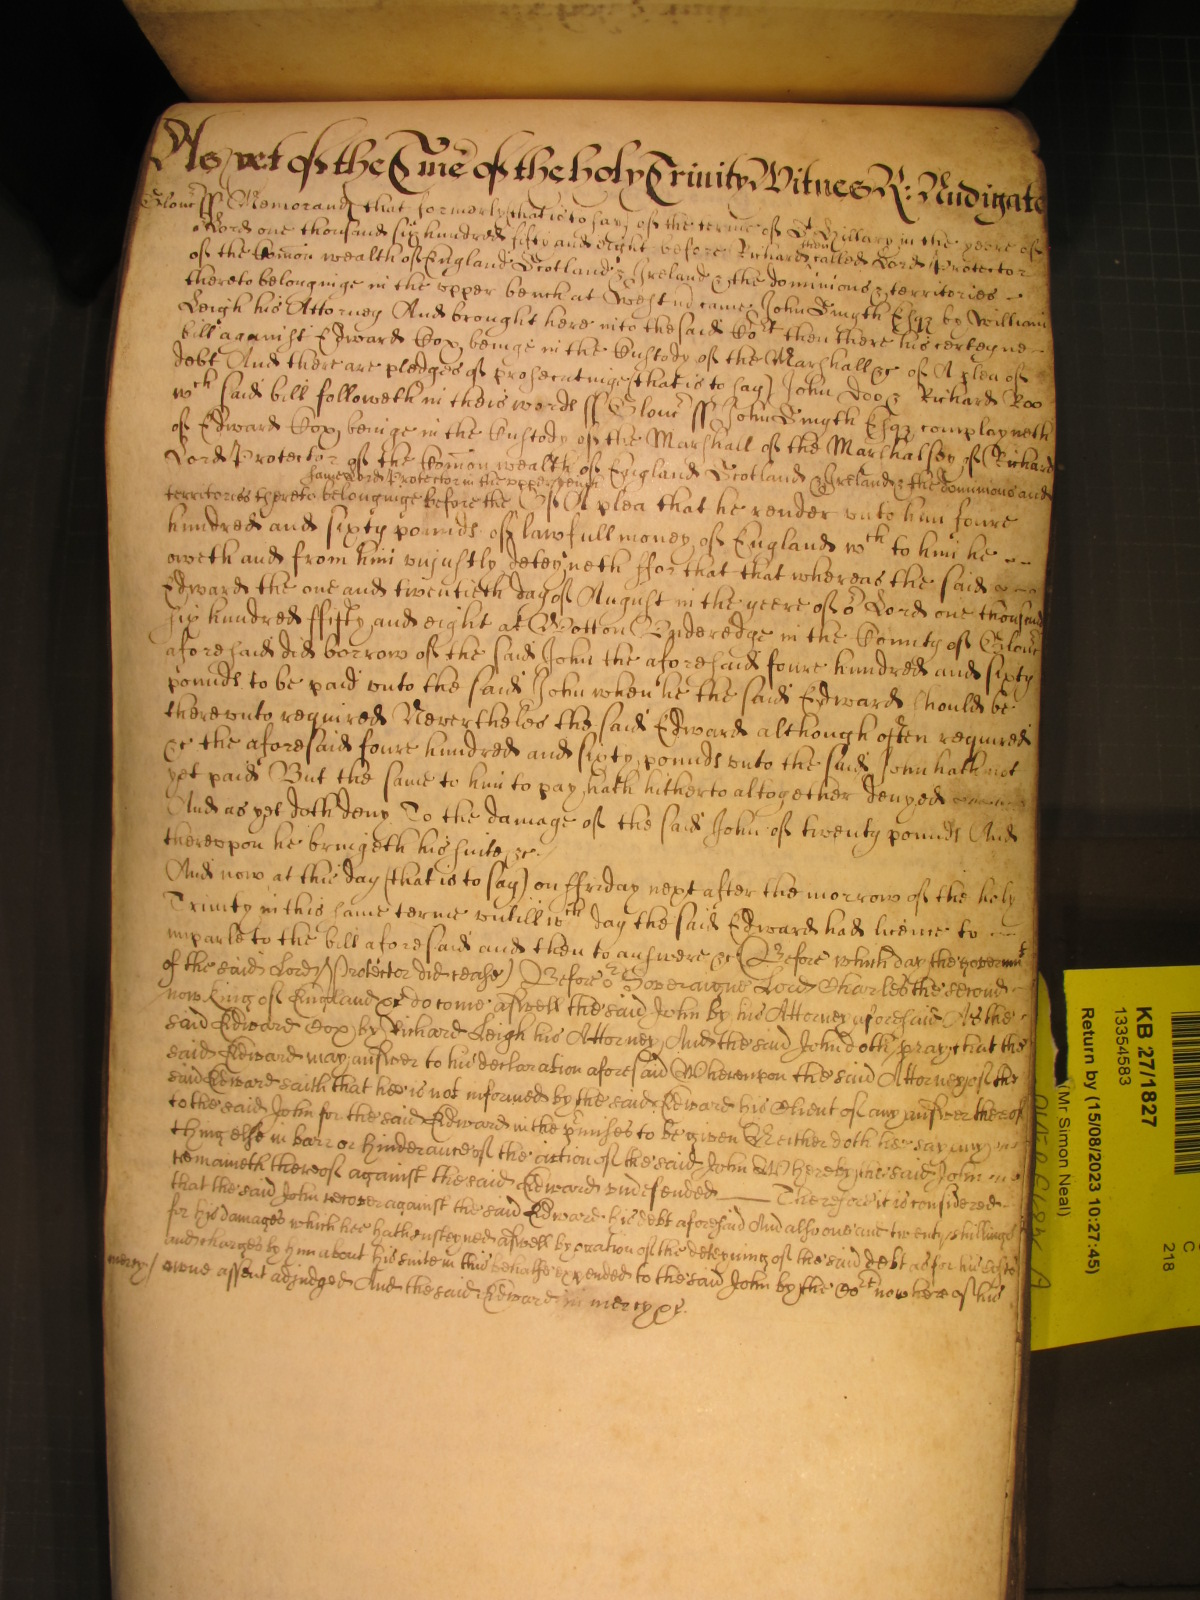 As yet of the Tme of the holy Trinity Witnes R: Nudigate
Glouc ss Memorand that formerly (that is to say) of the terme of St Hillary in the yeere of
or Lord one thousand six hundred fifty and eight before Richard then called Lord Protector
of the Comon wealth of England Scotland & Ireland & the dominions & territories
thereto belonginge in the upper bench at Westm came John Smyth Esqr by William
Leigh his Attorney And brought here into the said Cort then there his certeyne
bill against Edward Cox beinge in the Custody of the Marshall &c of A plea of
debt And there are pledges of prosecutinge (that is to say) John Doo & Richard Roo
wch said bill followeth in theis words ss Glouc ss John Smyth Esqr complayneth
of Edward Cox beinge in the Custody of the Marshall of the Marshalsey of Richard
Lord Protector of the Comon wealth of England Scotland & Ireland & the dominions and
same Lord Protector in the upper bench
territories thereto belonginge before the Of A plea that he render unto him foure
hundred and sixty pounds of lawfull money of England wch to him he
oweth and from him uniustly deteyneth ffor that that whereas the said
Edward the one and twentieth day of August in the yeere of or Lord one thousand
six hundred ffifty and eight at Wotton Underedge in the County of Glouc
aforesaid did borrow of the said John the aforesaid foure hundred and sixty
pounds to be paid unto the said John when he the said Edward should be
thereunto required Neverthelesse the said Edward although often required
&c the aforesaid foure hundred and sixty pounds unto the said John hath not
yet paid But the same to him to pay hath hitherto altogether denyed
And as yet doth deny To the damage of the said John of twenty pounds And
thereupon he bringeth his suite &c
And now at this day (that is to say) on ffriday next after the morrow of the holy
Trinity in this same terme untill wch day the said Edward had licence to
imparle to the bill aforesaid and then to answere &c (Before which day the governmt
of the said Lord Protector did cease) Before or Soveraigne Lord Charles the second
now King of England &c do come aswell the said John by his Attorney aforesaid As the
said Edward Cox by Richard Leigh his Attorney And the said John doth pray that the
said Edward may answer to his declaration aforesaid Whereupon the said Attorney of the
said Edward saith that hee is not informed by the said Edward his Client of any answer thereof
to the said John for the said Edward in the pmises to be given Neither doth he say any
thing else in barr or hinderance of the action of the said John Whereby the said John
remaineth thereof against the said Edward undefended Therefore it is considered
that the said John recover against the said Edward his debt aforesaid And also one and twenty shillings
for his damages which hee hath susteyned aswell by occation of the deteyning of the said debt as for his costs
and charges by him about his suite in this behalfe expended to the said John by the Cort now here of his
mercy / owne assent adjudged And the said Edward in mercy &c.
KB 27/1827
13354583
Return by (15/08/2023 10:27:45)
(Mr Simon Neal)
C
218